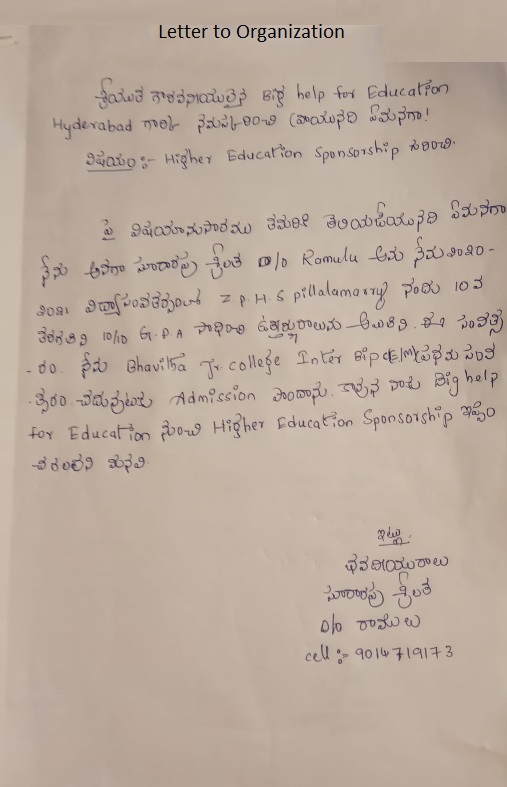 Letter to Organization
శ్రీయుత గౌరవనీయులైన Big help for Education
Hyderabad గారికి నమస్కరించి వ్రాయునది ఏమనగా!
విషయం :- Higher Education Sponsorship గురించి.
పై విషయానుసారము తమరికి తెలియజేయునది ఏమనగా
నేను అనగా సూరారపు శ్రీలత D/o Ramulu అను నేను 2020-
2021 విద్యాసంవత్సరంలో Z.P.H.S pillalamarry నందు 10వ
తరగతిని 10/10 G.P.A సాధించి ఉత్తీర్ణురాలును అయితిని. ఈ సంవత్స
-రం. నేను Bhavitha Jr.college Inter Bipc(E/M) ప్రథమ సంవ
-త్సరం చదువుటకు Admission పొందాను. కావున నాకు Big help
for Education నుంచి Higher Education Sponsorship ఇప్పిం
చగలరని మనవి.
ఇట్లు.
భవదీయురాలు
సూరారపు శ్రీలత
D/o రాములు
cell :- 9014719173